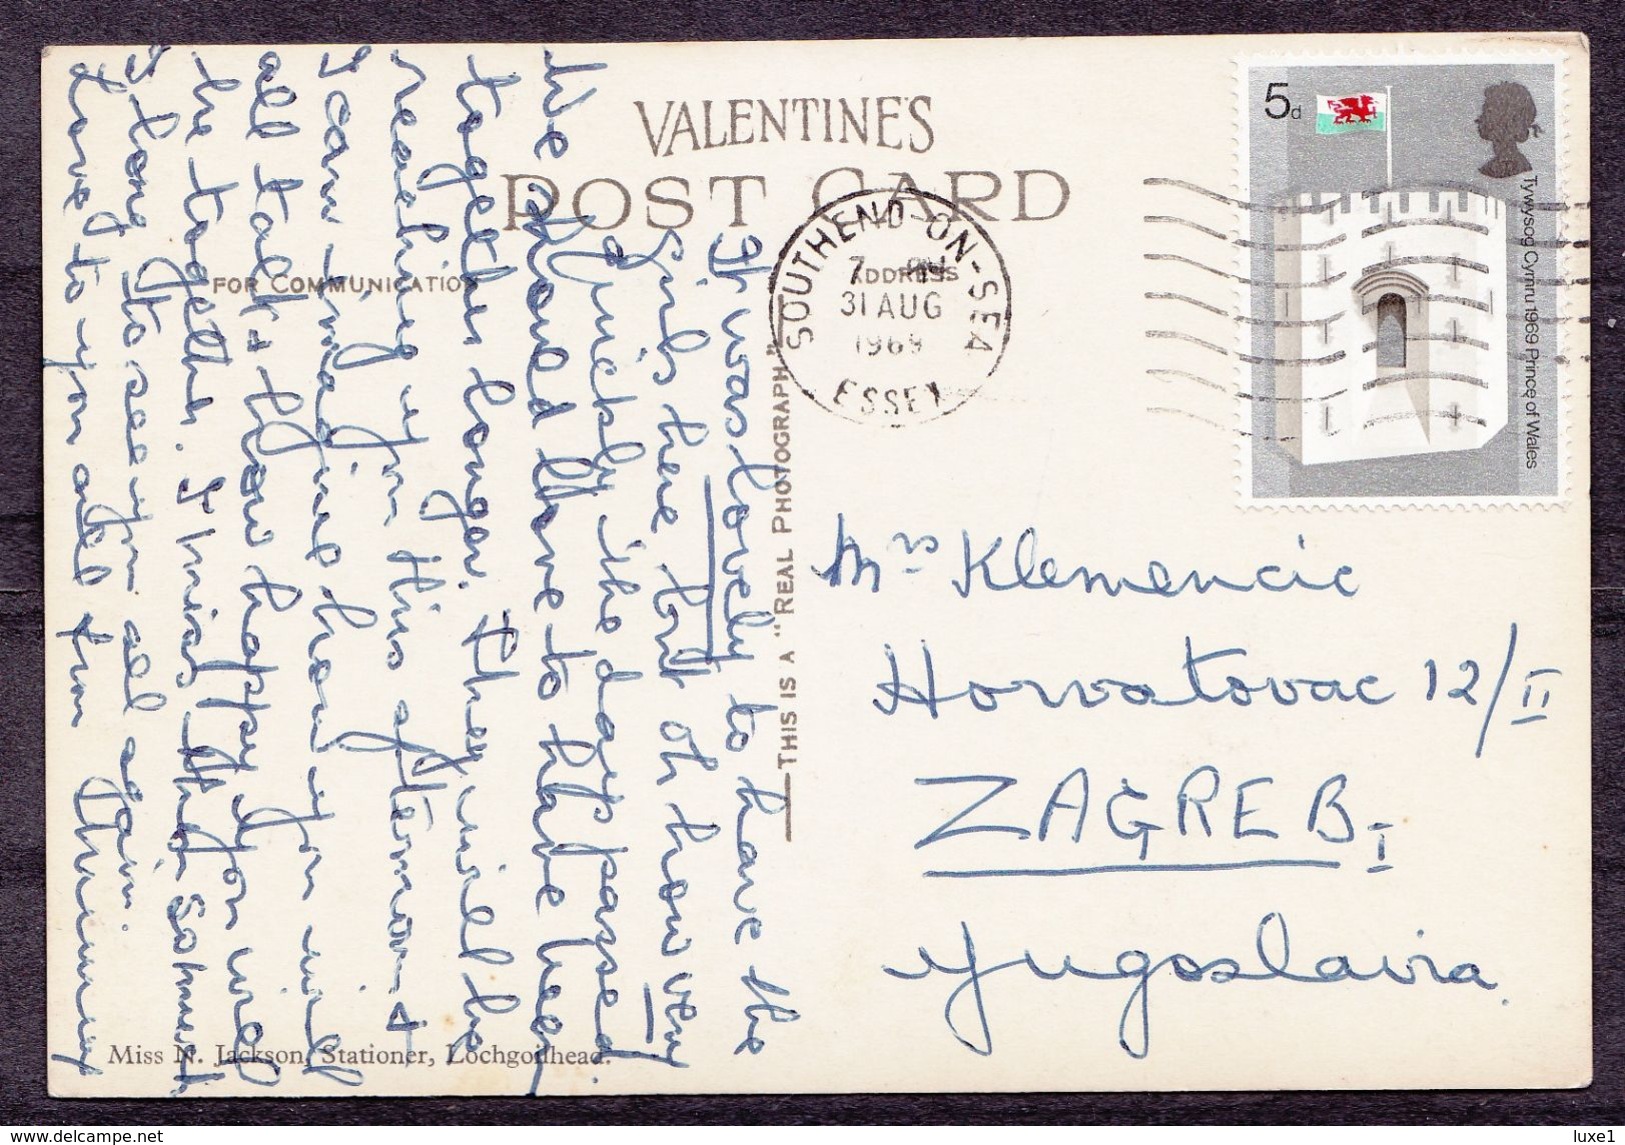 VALENTINE'S
POST CARD
FOR COMMUNICATION
ADDRESS
SOUTHEND-ON-SEA
7
31 AUG
1969
ESSEX
5d
Tywysog Cymru 1969 Prince of Wales
It was lovely to have the
girls here, but oh how very
quickly the days passed
We should love to have been
together longer. They will be
reaching you this afternoon &
I can imagine how you will
all talk & how happy you will
be together. I miss them so much
I long to see you all again.
Love to you all from
THIS IS A "REAL PHOTOGRAPH"
Mrs Klemencic
Horvatovac 12/II
ZAGREB I
Yugoslavia.
Miss N. Jackson, Stationer, Lochgoilhead.
luxe1
www.delcampe.net